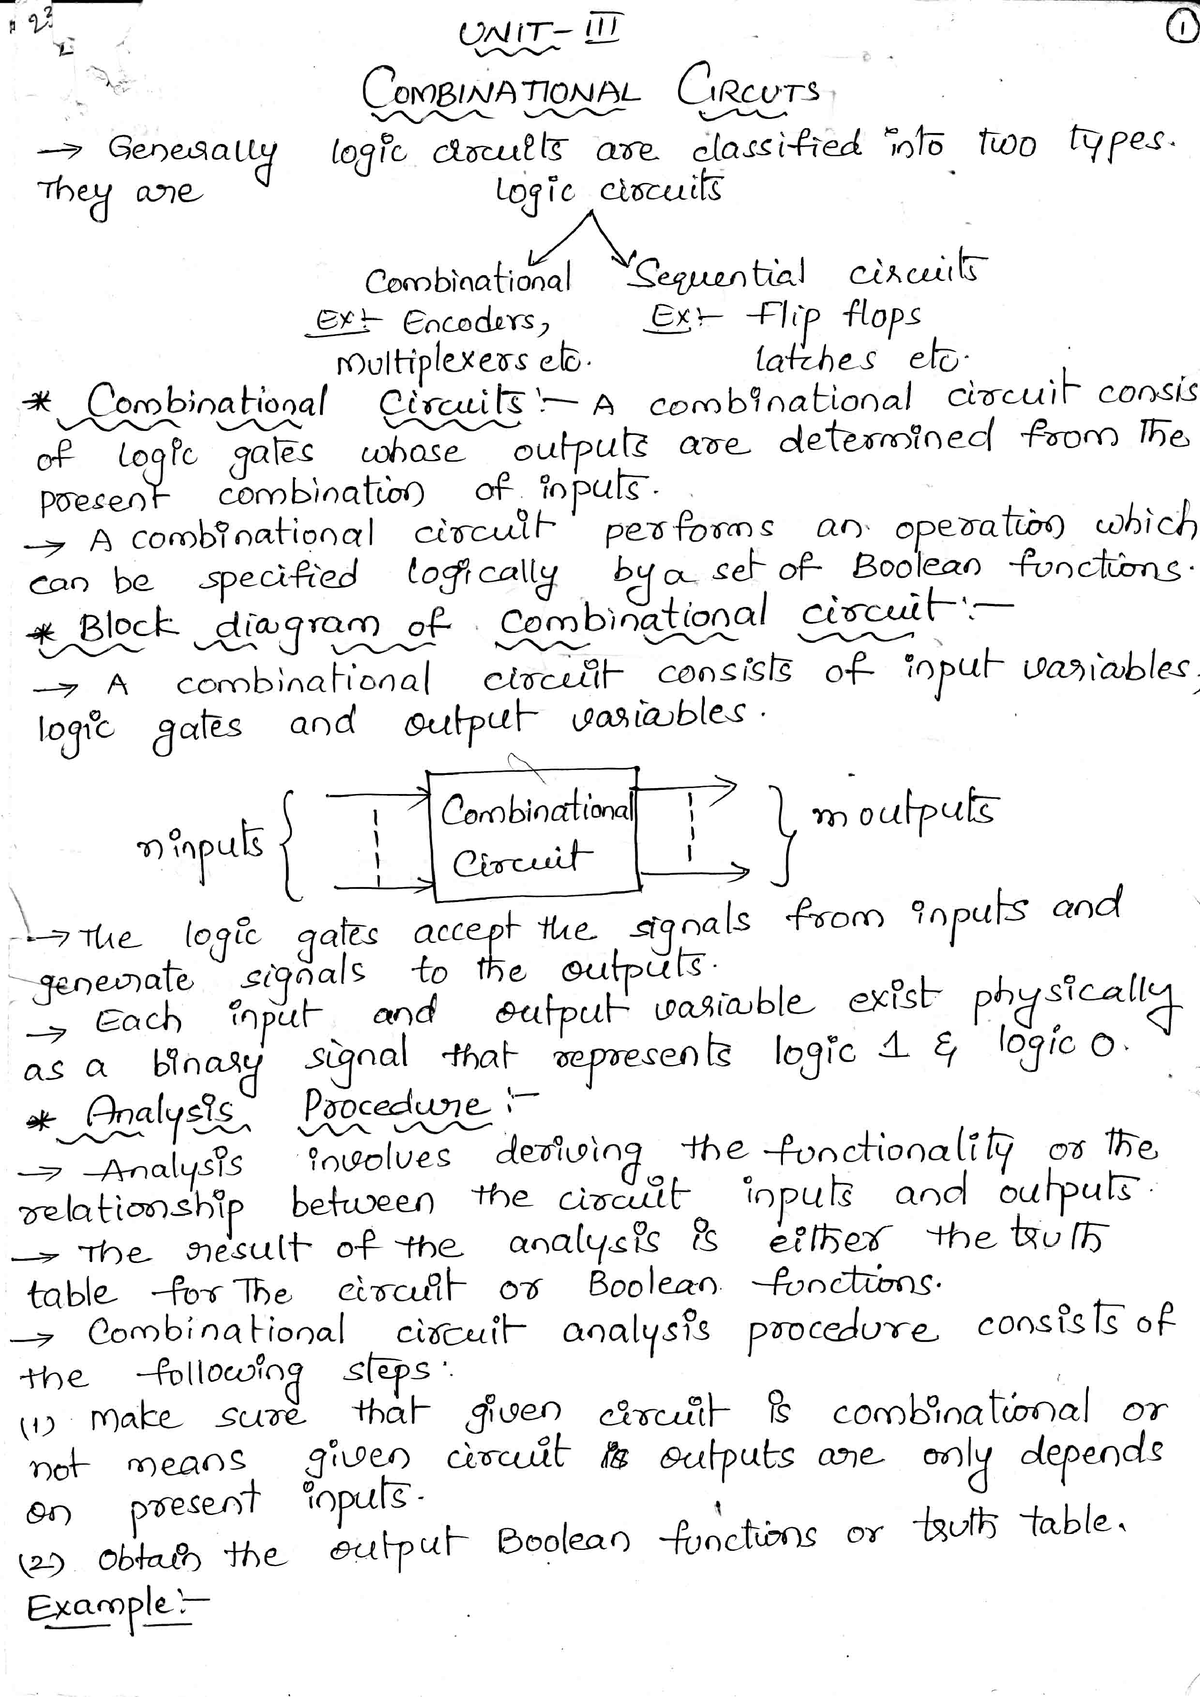 UNIT-III
1
COMBINATIONAL CIRCUTS
→ Generally logic circuits are classified into two types.
They are logic circuits
Combinational Sequential circuits
Ex:- Encoders, Ex:- Flip flops
multiplexers etc. latches etc.
* Combinational Circuits:- A combinational circuit consis
of logic gates whose outputs are determined from the
present combination of inputs.
→ A combinational circuit performs an operation which
can be specified logically by a set of Boolean functions.
* Block diagram of Combinational circuit:-
→ A combinational circuit consists of input variables,
logic gates and output variables.
n inputs { Combinational } m outputs
Circuit
→ The logic gates accept the signals from inputs and
generate signals to the outputs.
→ Each input and output variable exist physically
as a binary signal that represents logic 1 & logic 0.
* Analysis Procedure:-
→ Analysis involves deriving the functionality or the
relationship between the circuit inputs and outputs.
→ The result of the analysis is either the truth
table for The circuit or Boolean functions.
→ Combinational circuit analysis procedure consists of
the following steps:
(1) Make sure that given circuit is combinational or
not means given circuit outputs are only depends
on present inputs.
(2) Obtain the output Boolean functions or truth table.
Example:-